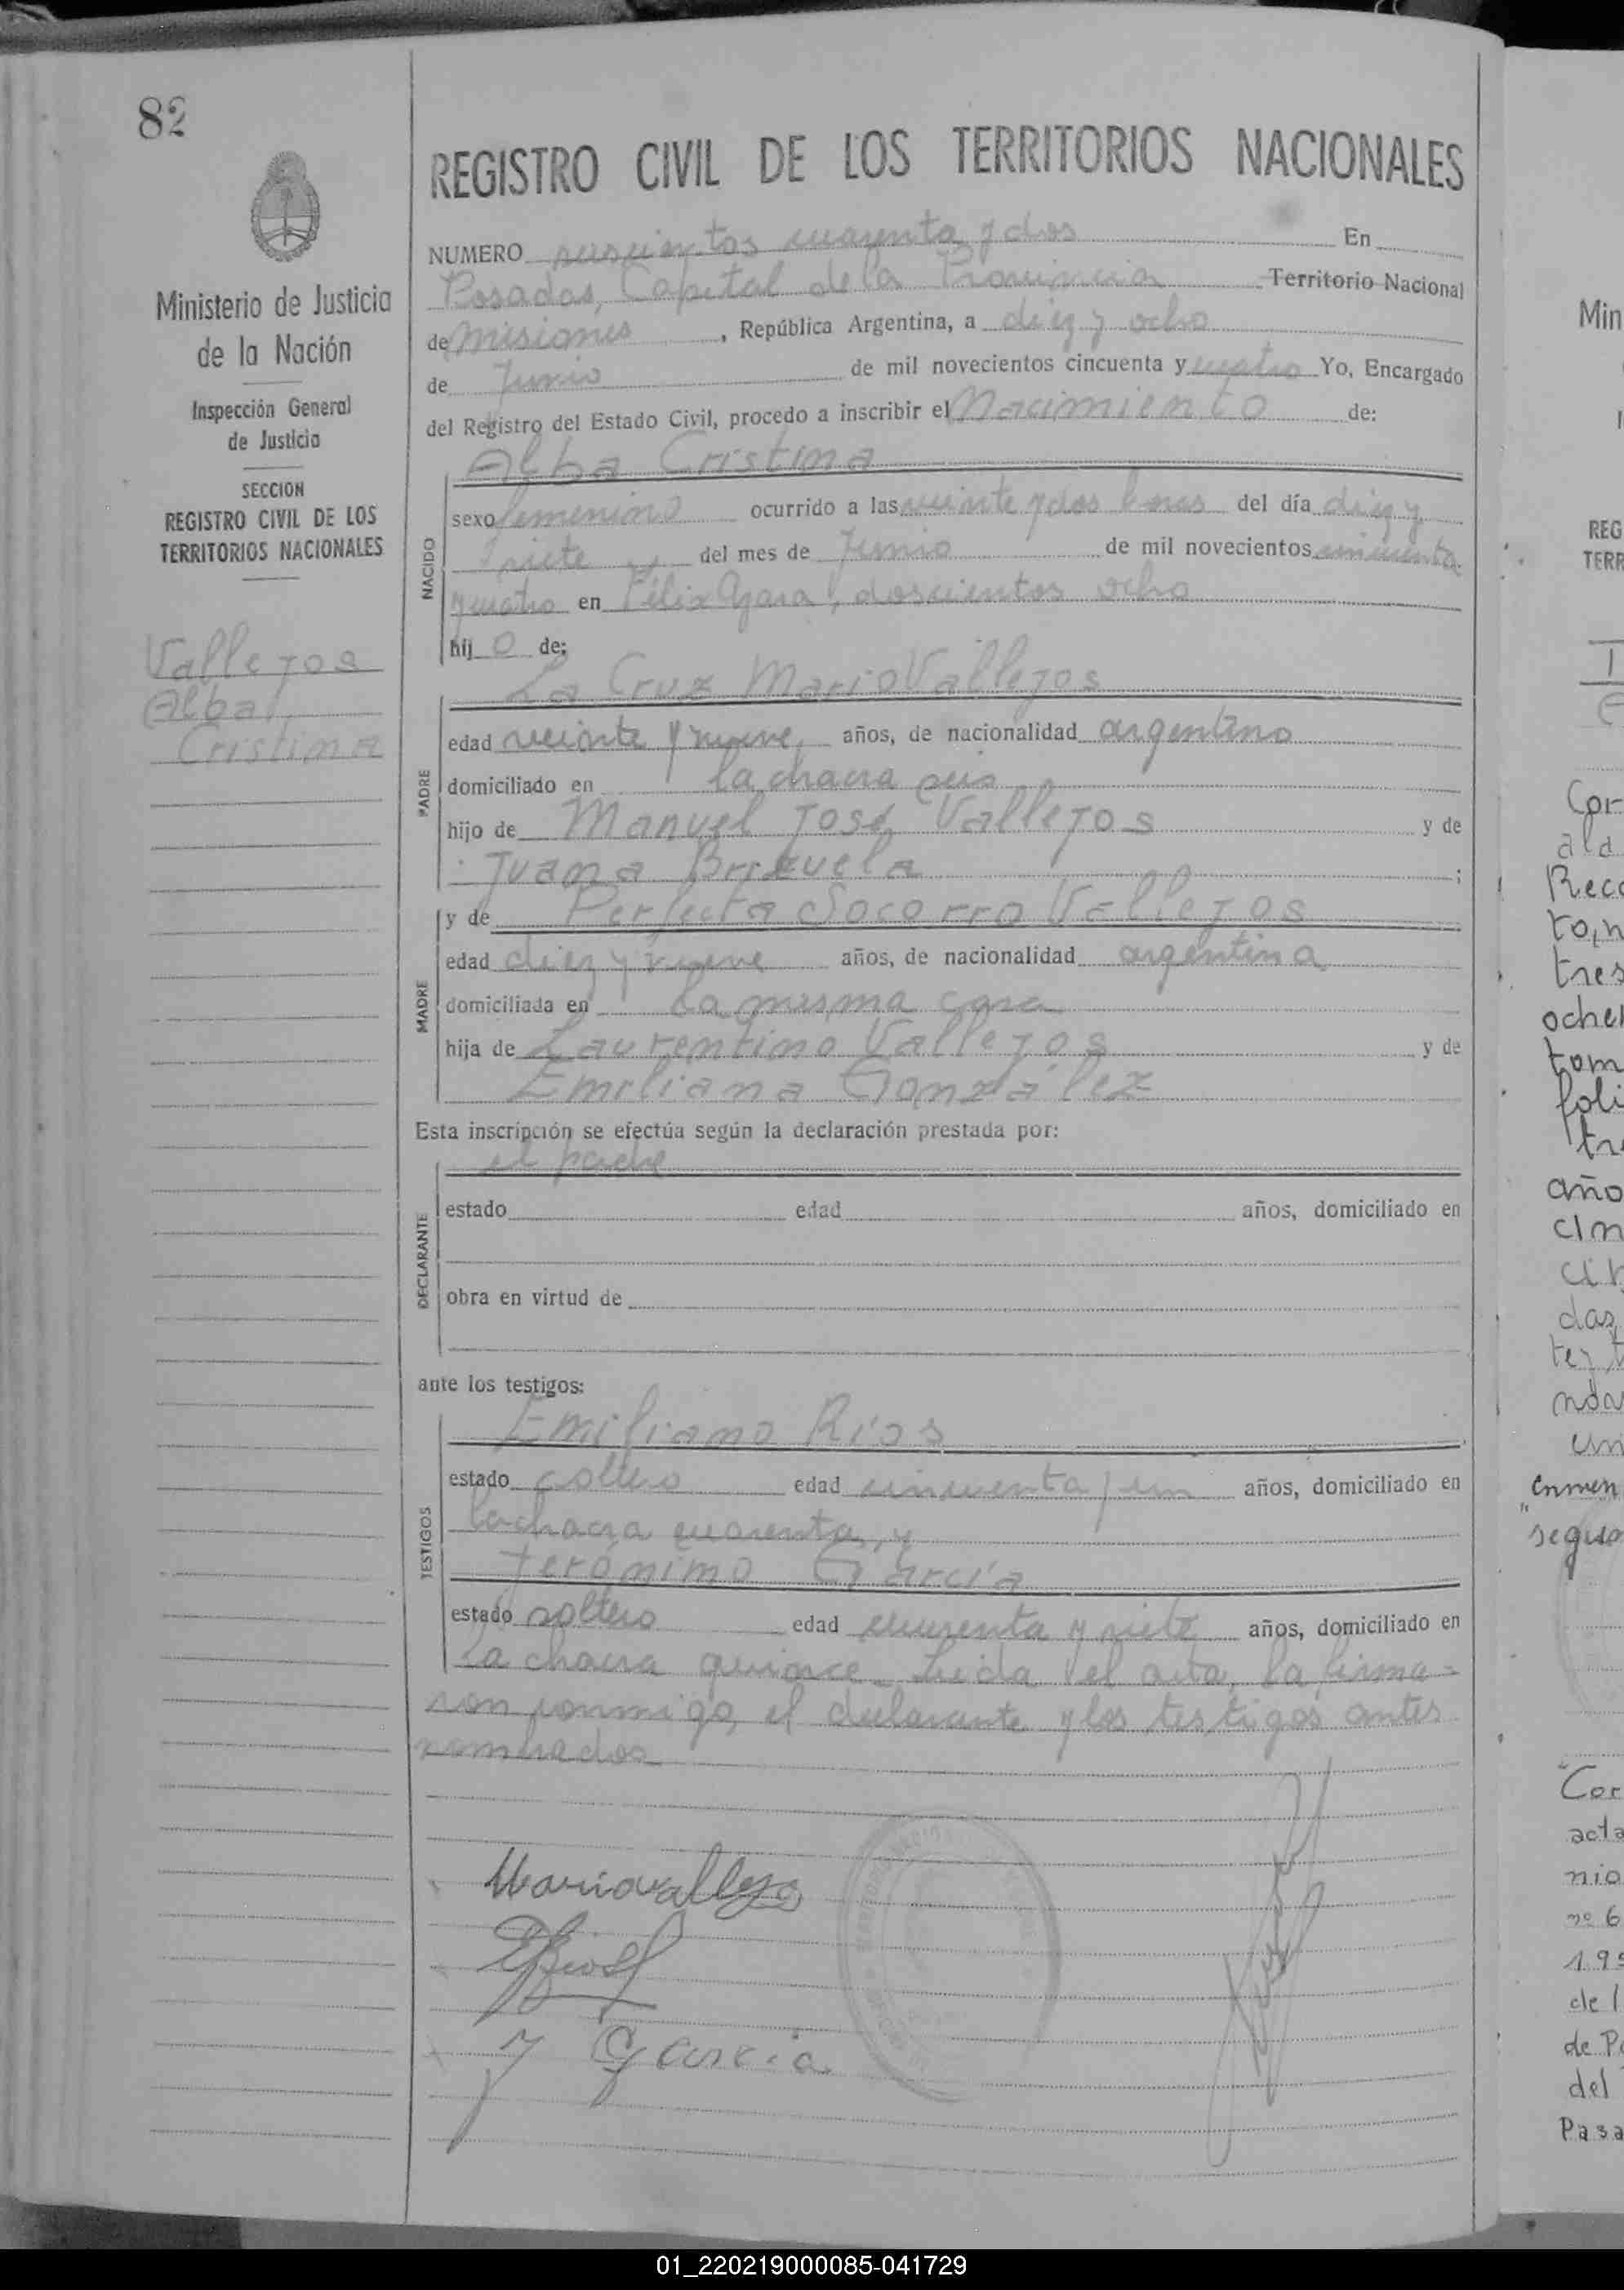 82
REGISTRO CIVIL DE LOS TERRITORIOS NACIONALES
Ministerio de Justicia
de la Nación
Inspección General
de Justicia
SECCION
REGISTRO CIVIL DE LOS
TERRITORIOS NACIONALES
Vallejos
Alba
Cristina
NUMERO seiscientos cuarenta y dos En
Posadas, Capital de la Provincia Territorio Nacional
de Misiones, República Argentina, a diez y ocho
de Junio de mil novecientos cincuenta y cuatro Yo, Encargado
del Registro del Estado Civil, procedo a inscribir el Nacimiento de:
Alba Cristina
NACIDO
sexo femenino ocurrido a las veinte y dos horas del día diez y
siete del mes de Junio de mil novecientos cincuenta
y cuatro en Félix Azara, doscientos ocho
hij o de:
La Cruz Mario Vallejos
PADRE
edad veinte y nueve, años, de nacionalidad argentino
domiciliado en la chacra seis
hijo de Manuel José Vallejos y de
Juana Brizuela ;
y de Perfecta Socorro Vallejos
MADRE
edad diez y nueve años, de nacionalidad argentina
domiciliada en la misma casa
hija de Laurentino Vallejos y de
Emiliana González
Esta inscripción se efectúa según la declaración prestada por:
el padre
DECLARANTE
estado edad años, domiciliado en
obra en virtud de
ante los testigos:
Emiliano Ríos
TESTIGOS
estado soltero edad cincuenta y un años, domiciliado en
la chacra cuarenta, y
Jerónimo García
estado soltero edad cuarenta y siete años, domiciliado en
la chacra quince. Leida el acta, la firma-
ron conmigo, el declarante y los testigos antes
nombrados
Mario Vallejos
E Rios
J Garcia
Min
REG
TERR
Cor
ald
Reco
to, n
tres
oche
tom
foli
tr
año
cin
das
nda
un
enmen
"segun
"Cor
acta
nio
nº 6
195
de l
de Po
del
Pasa
01_220219000085-041729